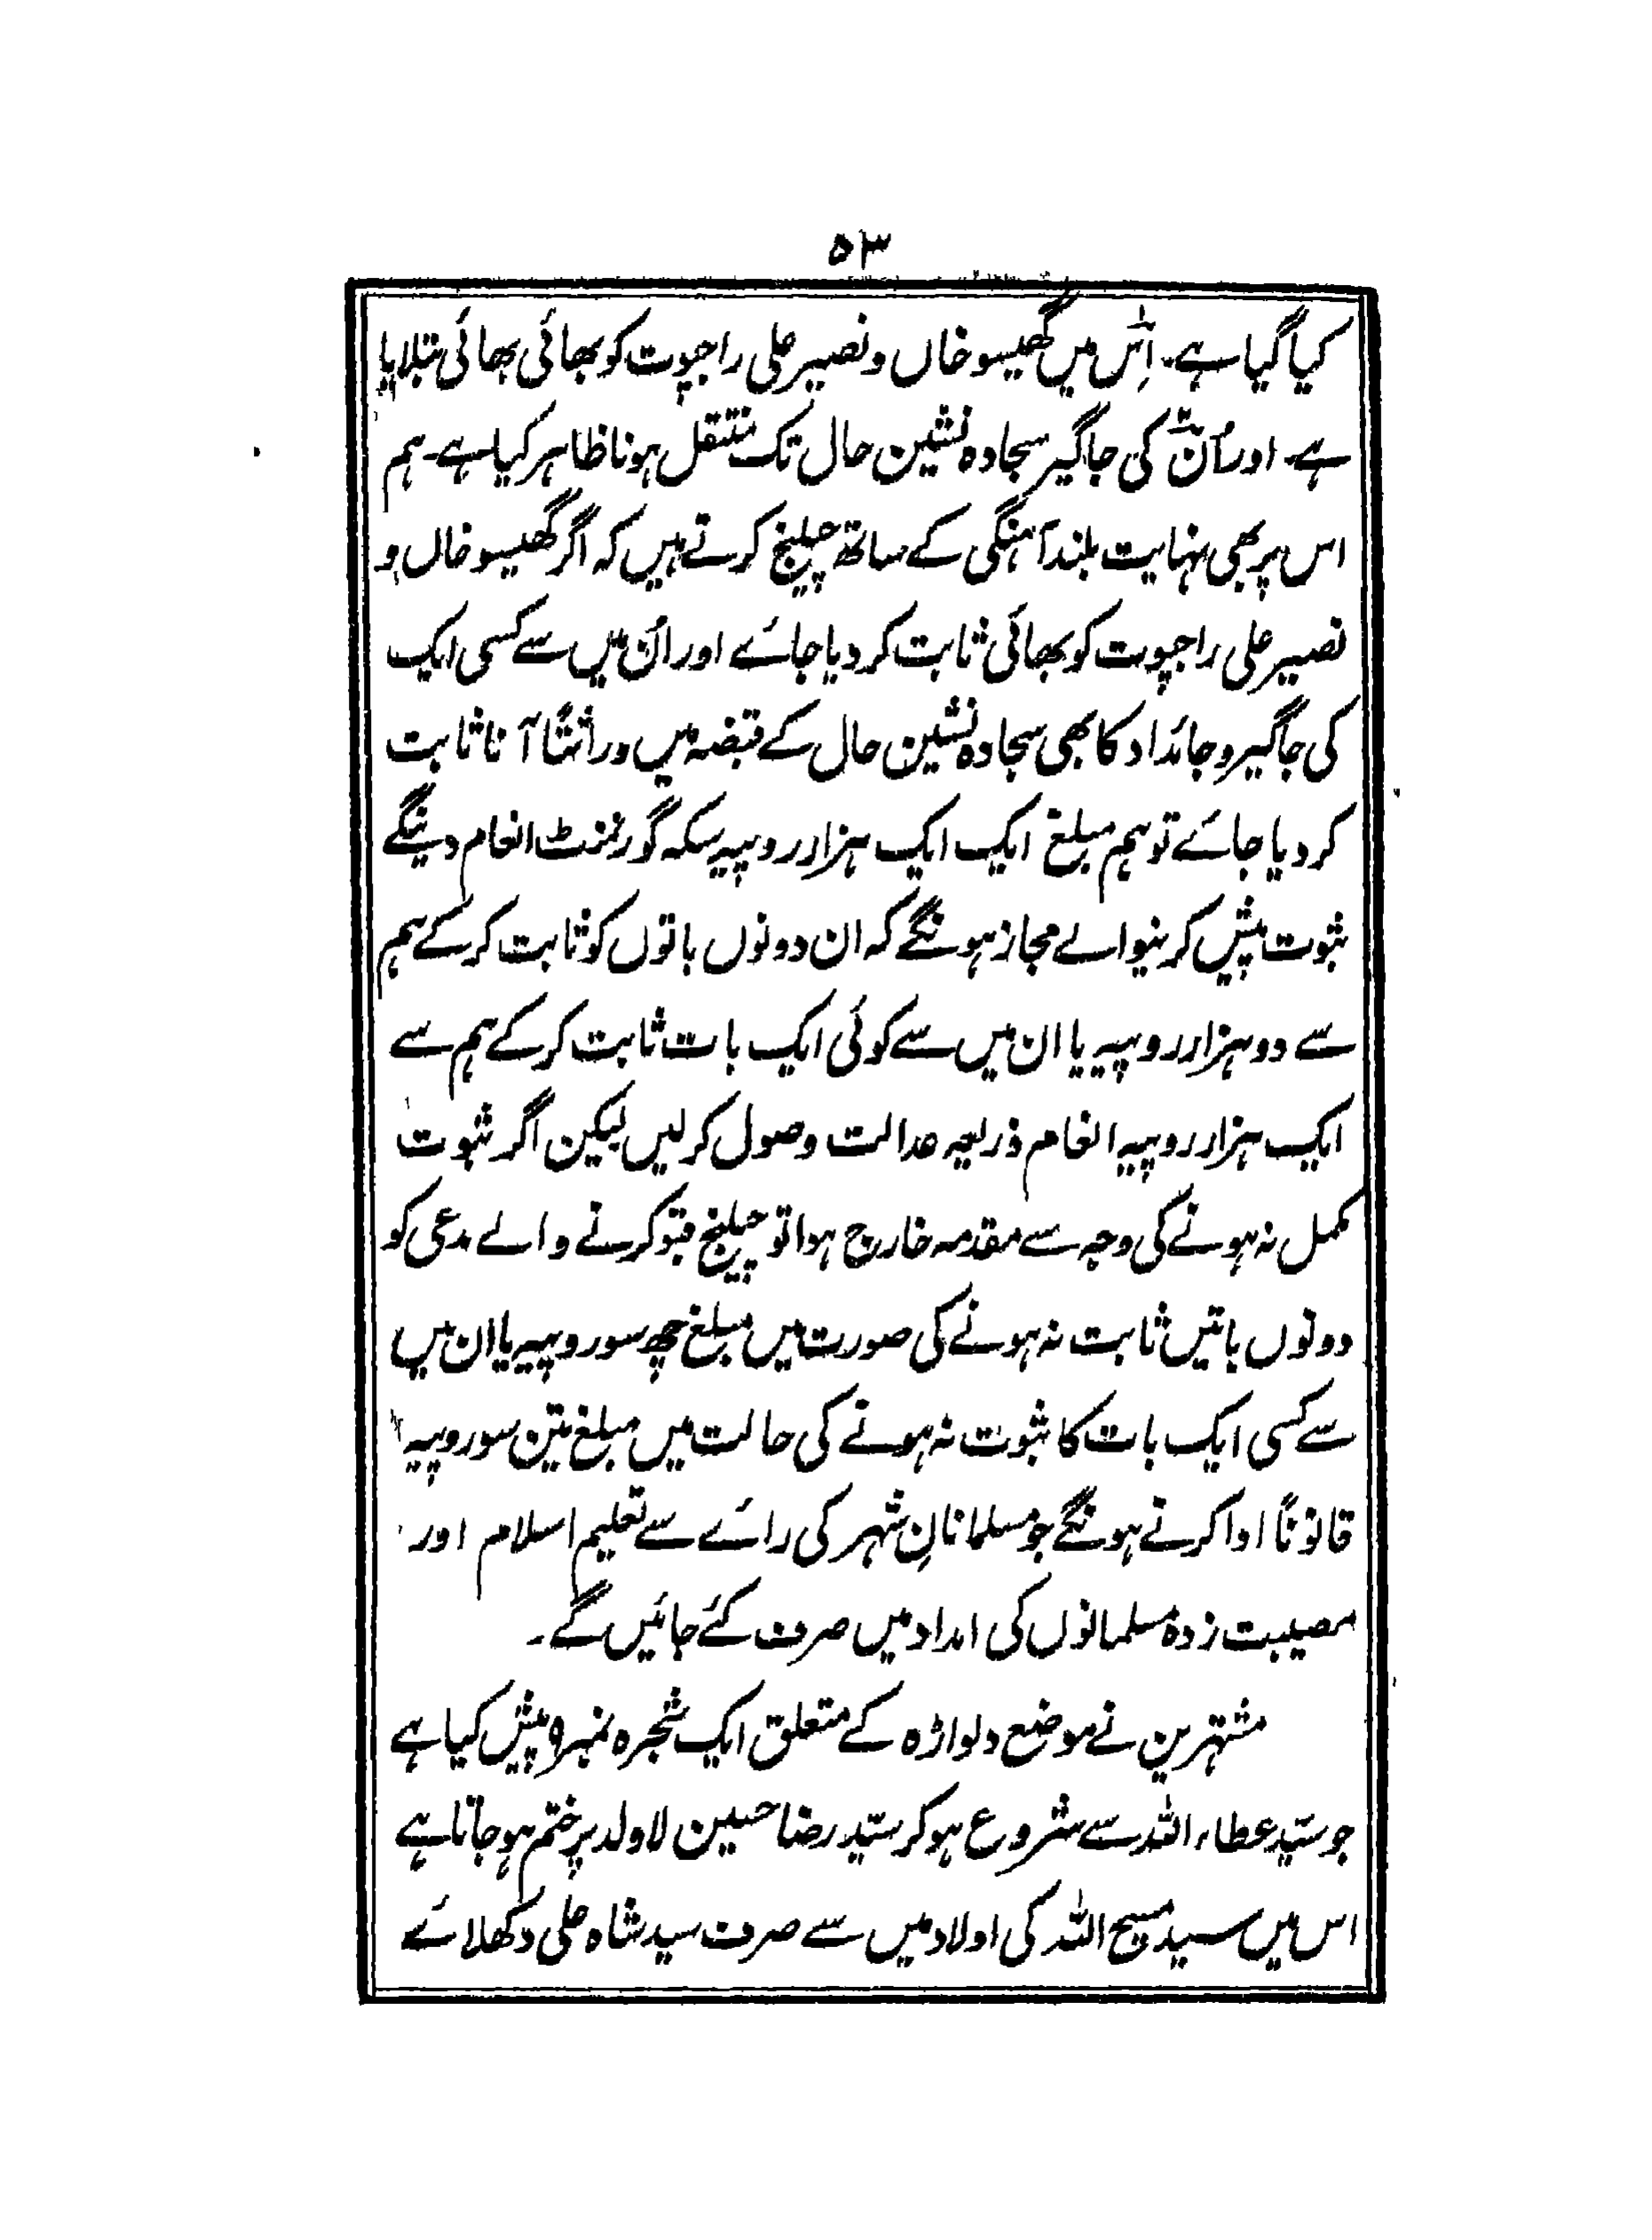 ۵۳
کیا گیا ہے۔ اِس میں گھیسو خاں و نصیر علی راجپوت کو بھائی بھائی بتلایا
ہے۔ اور اُن کی جاگیر سجادہ نشین حال تک منتقل ہونا ظاہر کیا ہے۔ ہم
اس پر بھی نہایت بلند آہنگی کے ساتھ چیلنج کرتے ہیں کہ اگر گھیسو خاں و
نصیر علی راجپوت کو بھائی ثابت کر دیا جائے اور اُن میں سے کسی ایک
کی جاگیر و جائداد کا بھی سجادہ نشین حال کے قبضہ میں وراثتاً آنا ثابت
کر دیا جائے تو ہم مبلغ ایک ایک ہزار روپیہ سکہ گورنمنٹ انعام دینگے
ثبوت پیش کرنیوالے مجاز ہونگے کہ ان دونوں باتوں کو ثابت کر کے ہم
سے دو ہزار روپیہ یا ان میں سے کوئی ایک بات ثابت کر کے ہم سے
ایک ہزار روپیہ انعام ذریعہ عدالت وصول کر لیں لیکن اگر ثبوت
مکمل نہ ہونے کی وجہ سے مقدمہ خارج ہوا تو چیلنج قبول کرنے والے مدعی کو
دونوں باتیں ثابت نہ ہونے کی صورت میں مبلغ چھ سو روپیہ یا ان میں
سے کسی ایک بات کا ثبوت نہ ہونے کی حالت میں مبلغ تین سو روپیہ
قانوناً ادا کرنے ہونگے جو مسلمانانِ شہر کی رائے سے تعلیم اسلام اور
مصیبت زدہ مسلمانوں کی امداد میں صرف کئے جائیں گے۔
مشتہرین نے موضع دلواڑہ کے متعلق ایک شجرہ نمبر ۹ پیش کیا ہے
جو سیّد عطاء اللہ سے شروع ہو کر سیّد رضا حسین لاولد پر ختم ہو جاتا ہے
اس میں سید مسیح اللہ کی اولاد میں سے صرف سید شاہ علی دکھلائے